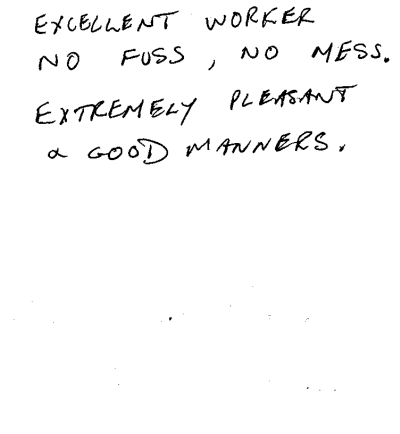 EXCELLENT WORKER
NO FUSS, NO MESS.
EXTREMELY PLEASANT
& GOOD MANNERS.